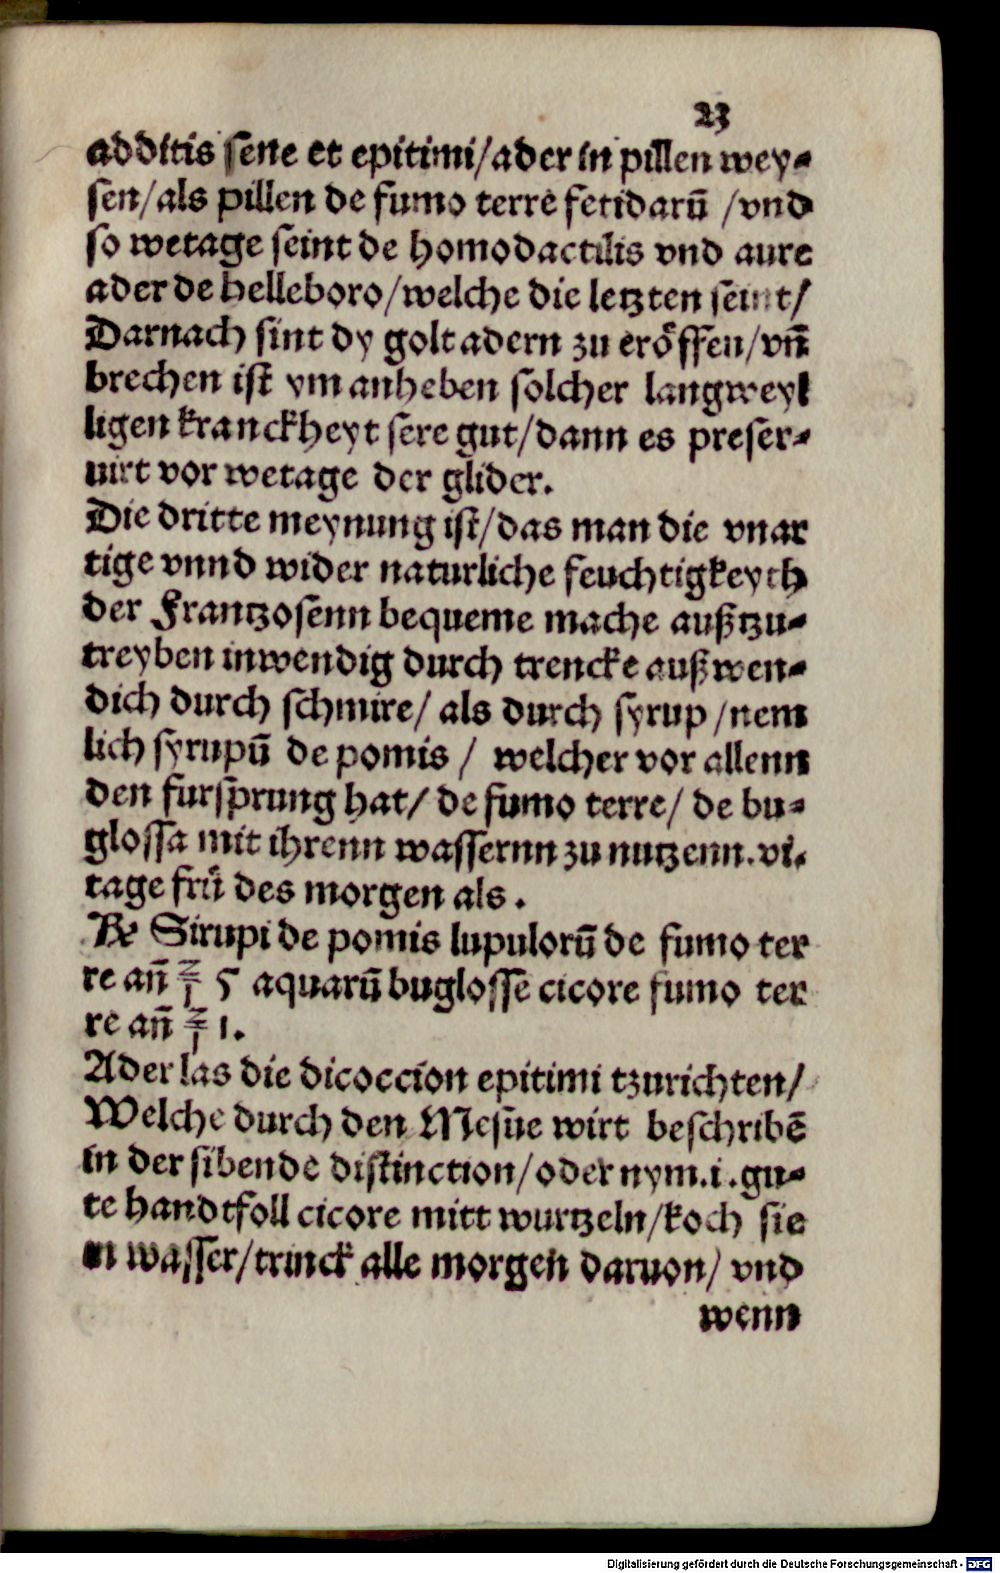 23
additis sene et epitimi/ader in pillen wey⸗
sen/als pillen de fumo terre fetidarū /vnd
so wetage seint de homodactilis vnd aure
ader de helleboro/welche die letzten seint/
Darnach sint dy golt adern zu eröffen/vn̄
brechen ist ym anheben solcher langweyl
ligen kranckheyt sere gut/dann es preser⸗
uirt vor wetage der glider.
Die dritte meynung ist/das man die vnar
tige vnnd wider naturliche feuchtigkeyth
der Frantzosenn bequeme mache außtzu⸗
treyben inwendig durch trencke außwen⸗
dich durch schmire/ als durch syrup /nem
lich syrupū de pomis / welcher vor allenn
den fursprung hat/ de fumo terre/ de bu⸗
glossa mit ihrenn wassernn zu nutzenn.vi.
tage frū des morgen als.
℞ Sirupi de pomis lupulorū de fumo ter
re an̄ ℥ 5 aquarū buglosse cicore fumo ter
re an̄ ℥ 1.
Ader las die dicoccion epitimi tzurichten/
Welche durch den Mesue wirt beschribē
in der sibende distinction/oder nym.i.gu⸗
te handtfoll cicore mitt wurtzeln/koch sie
in wasser/trinck alle morgen daruon/ vnd
wenn
Digitalisierung gefördert durch die Deutsche Forschungsgemeinschaft - DFG